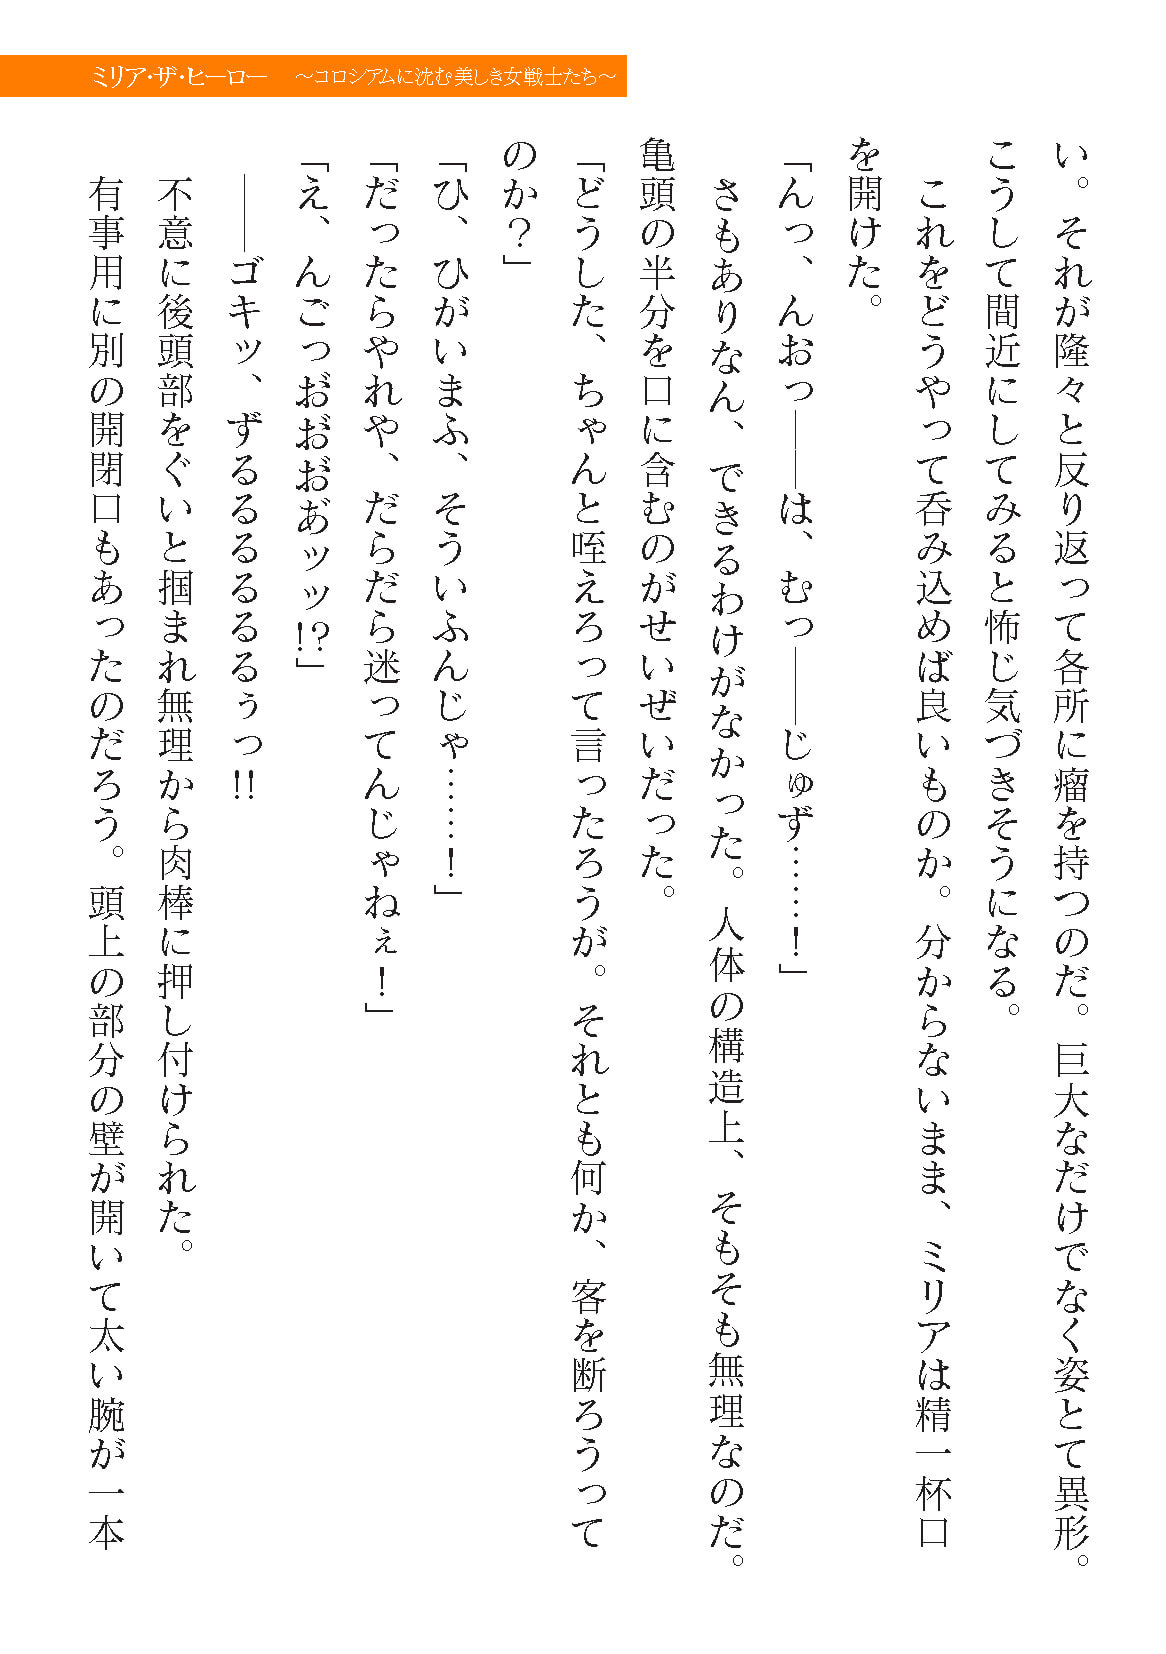 ミリア・ザ・ヒーロー　～コロシアムに沈む美しき女戦士たち～
い。それが隆々と反り返って各所に瘤を持つのだ。巨大なだけでなく姿とて異形。
こうして間近にしてみると怖じ気づきそうになる。
　これをどうやって呑み込めば良いものか。分からないまま、ミリアは精一杯口
を開けた。
「んっ、んおっ――は、むっ――じゅず……！」
　さもありなん、できるわけがなかった。人体の構造上、そもそも無理なのだ。
亀頭の半分を口に含むのがせいぜいだった。
「どうした、ちゃんと咥えろって言ったろうが。それとも何か、客を断ろうって
のか？」
「ひ、ひがいまふ、そういふんじゃ……！」
「だったらやれや、だらだら迷ってんじゃねぇ！」
「え、んごっお゙お゙お゙あ゙ッッ!?」
　――ゴキッ、ずるるるるるるぅっ!!
　不意に後頭部をぐいと掴まれ無理から肉棒に押し付けられた。
　有事用に別の開閉口もあったのだろう。頭上の部分の壁が開いて太い腕が一本